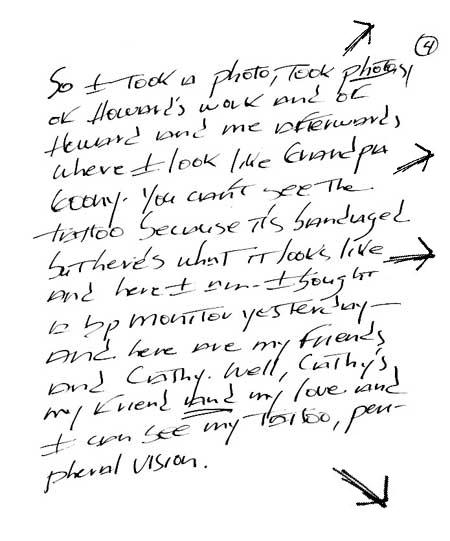 4
So I took a photo, took photos
of Howard's work and of
Howard and me afterwards
where I look like Grandpa
Goony. You can't see the
tattoo because it's bandaged
but here's what it looks like
and here I am. I bought
a bp monitor yesterday—
and here are my friends
and Cathy. Well, Cathy's
my friend and my love and
I can see my tattoo, peri-
pheral vision.